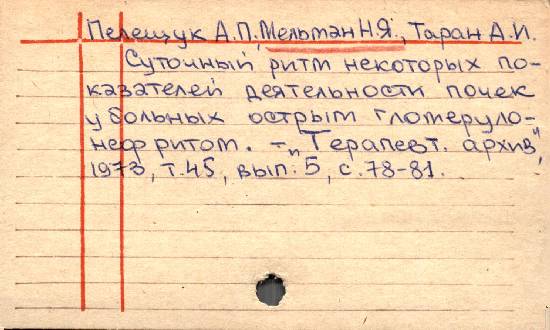 Пелещук А.П., Мельман Н.Я., Таран А.И.
Суточный ритм некоторых по-
казателей деятельности почек
у больных острым гломеруло-
нефритом. – „Терапевт. архив",
1973, т.45, вып. 5, с. 78-81.